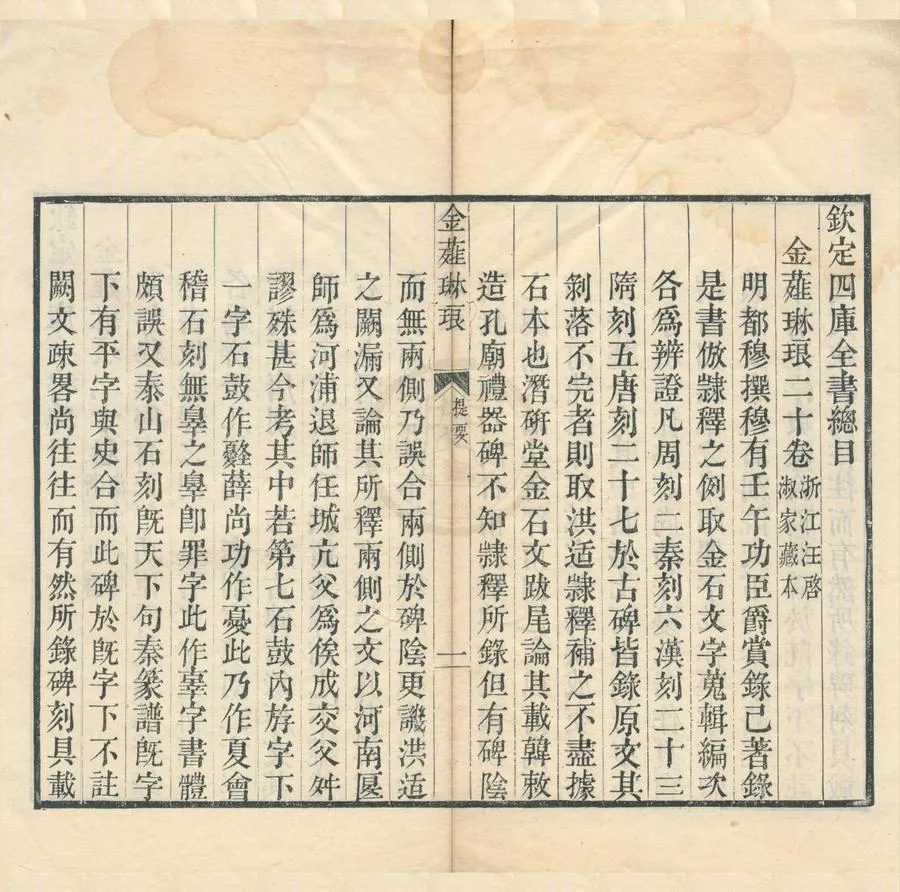 欽定四庫全書總目
金薤琳琅二十卷浙江汪啓
淑家藏本
明都穆撰穆有壬午功臣爵賞錄已著錄
是書倣隸釋之例取金石文字蒐輯編次
各爲辨證凡周刻二秦刻六漢刻二十三
隋刻五唐刻二十七於古碑皆錄原文其
剝落不完者則取洪适隸釋補之不盡據
石本也潛硏堂金石文跋尾論其載韓敕
造孔廟禮器碑不知隸釋所錄但有碑陰
金薤琳琅
提要
一
而無兩側乃誤合兩側於碑陰更譏洪适
之闕漏又論其所釋兩側之文以河南匽
師爲河浦退師任城亢父爲俟成交父舛
謬殊甚今考其中若第七石鼓內斿字下
一字石鼓作㜸薛尚功作憂此乃作夏會
稽石刻無辠之辠卽罪字此作辜字書體
頗誤又泰山石刻旣天下句秦篆譜旣字
下有平字與史合而此碑於旣字下不註
闕文疎畧尚往往而有然所錄碑刻具載